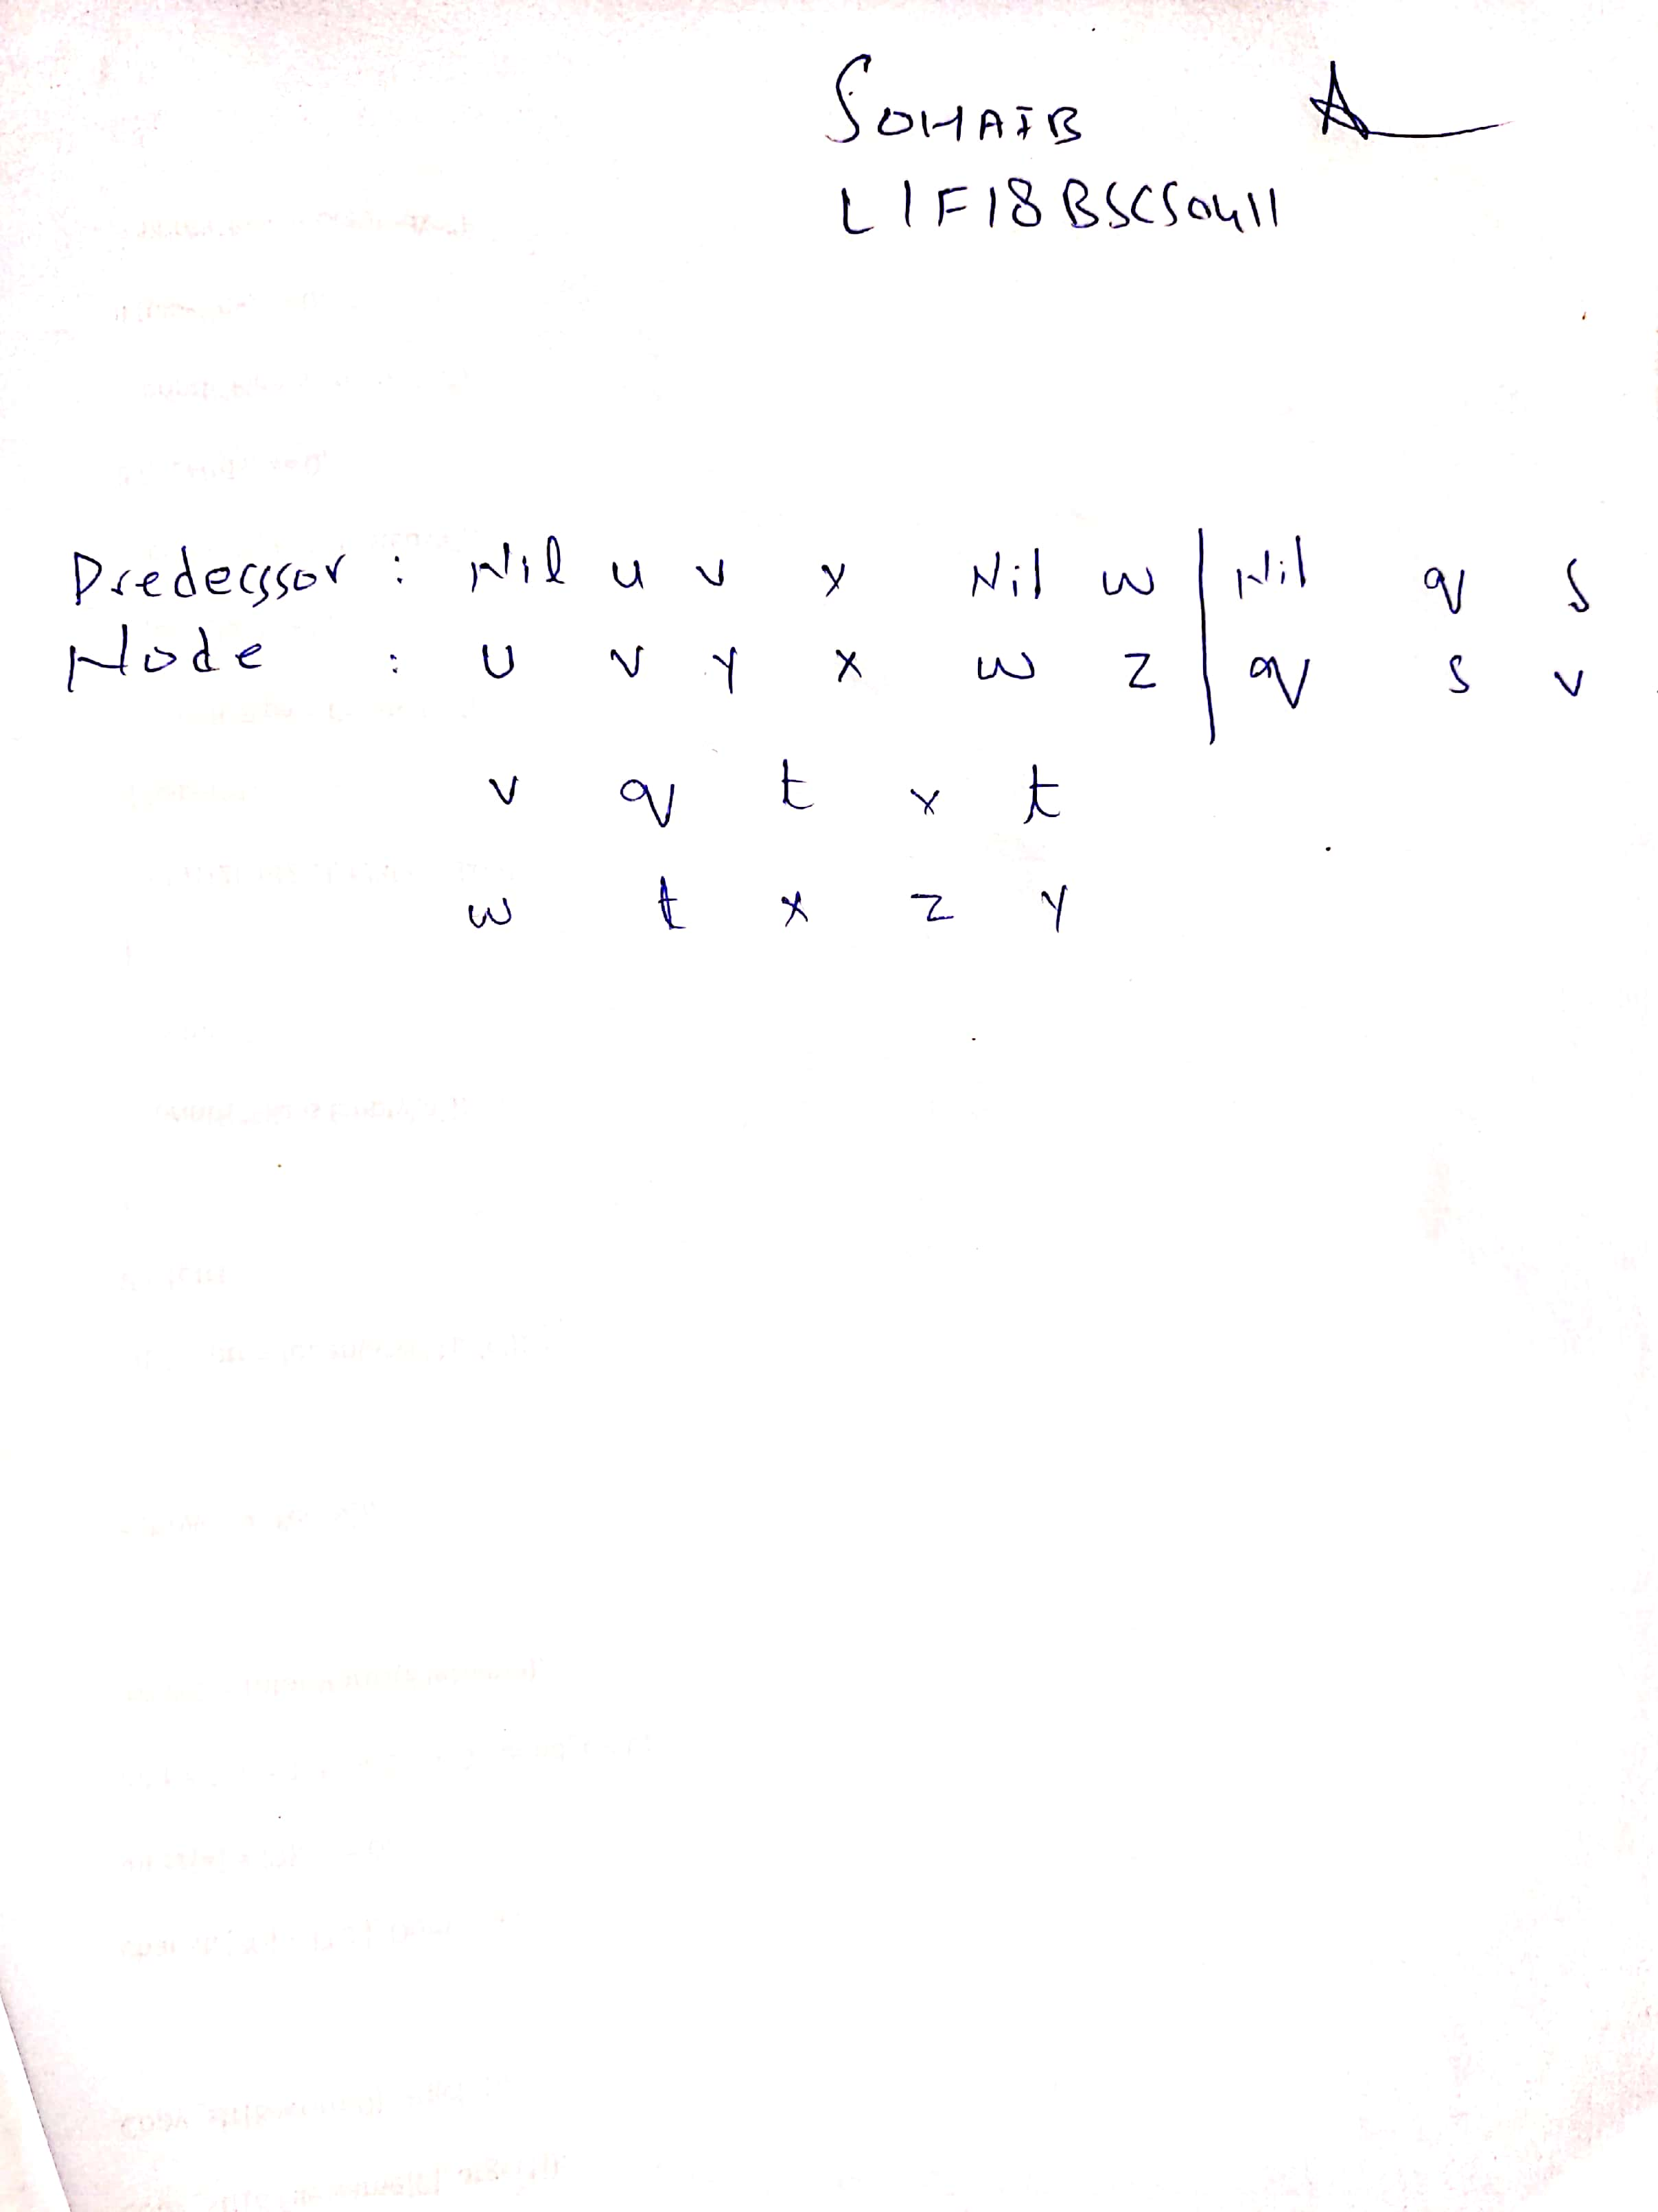 SOHAIB
L1F18BSCS0411
Predecssor : Nil u v y Nil w | Nil q s
Node : U v y x w z | q s v
v q t x t
w t x z y